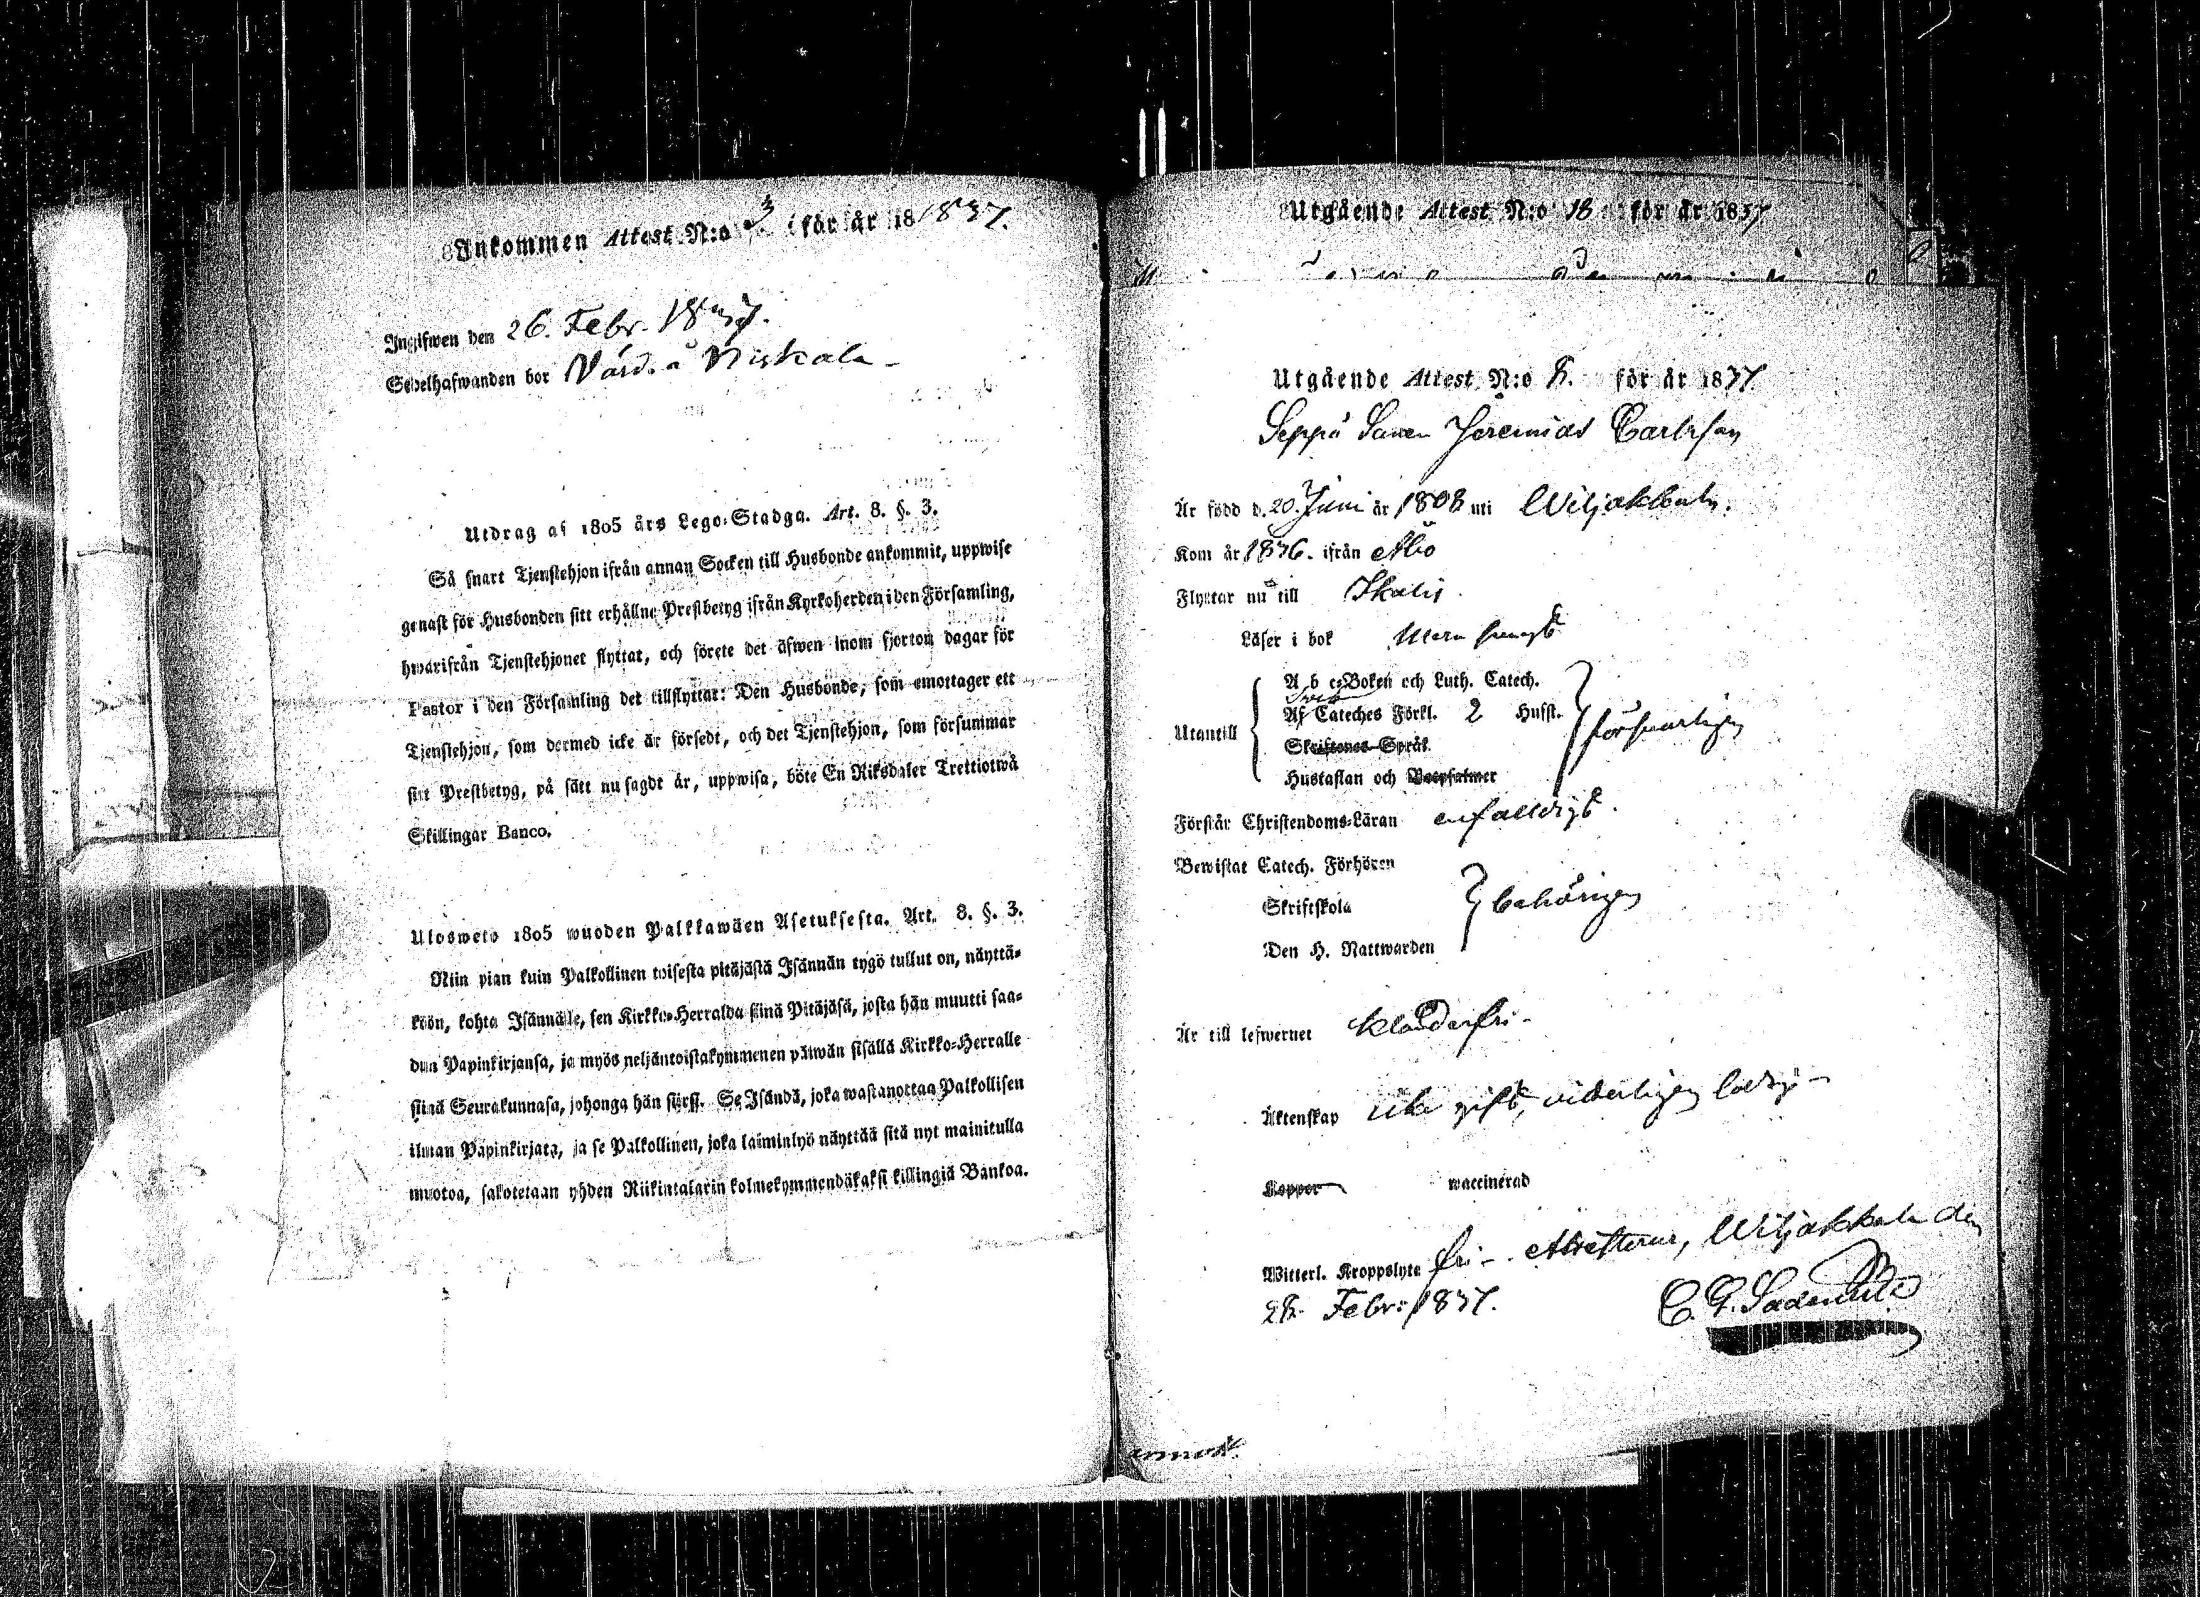 Inkommen Attest N:o 3 för år 18 1837.
Ingifwen den 26. Febr. 1837.
Sedelhafwanden bor Niskala
Utdrag af 1805 års Lego-Stadga. Art. 8. §. 3.
Så snart Tjenstehjon ifrån annan Socken till Husbonde ankommit, uppwise
genast för Husbonden sitt erhållne Prestbetyg ifrån Kyrkoherden i den Församling,
hwarifrån Tjenstehjonet flyttat, och förete det äfwen inom fjorton dagar för
Pastor i den Församling det tillflyttat: Den Husbonde, som emottager ett
Tjenstehjon, som dermed icke är försedt, och det Tjenstehjon, som försummar
sitt Prestbetyg, på sätt nu sagdt är, uppwisa, böte En Riksdaler Trettiotwå
Skillingar Banco.
Ulosweto 1805 wuoden Palkkawäen Asetuksesta. Art. 8. §. 3.
Niin pian kuin Palkollinen toisesta pitäjästä Isännän tygö tullut on, näyttä-
köön, kohta Isännälle, sen Kirkko-Herralda siinä Pitäjäsä, josta hän muutti saa-
dun Papinkirjansa, ja myös neljäntoistakymmenen päiwän sisällä Kirkko-Herralle
siinä Seurakunnasa, johonga hän siirsi. Se Isändä, joka wastanottaa Palkollisen
ilman Papinkirjata, ja se Palkollinen, joka laiminlyö näyttää sitä nyt mainitulla
muotoa, sakotetaan yhden Riikintalarin kolmekymmendäkaksi killingiä Bankoa.
Utgående Attest N:o 18 för år 1837
Utgående Attest N:o 8. för år 1837.
Seppä Jeremias Carlsson
Är född d. 20. Juni år 1808 uti Wiljakkala.
Kom år 1836. ifrån Åbo
Flyttar nu till Ikalis
Läser i bok
A b c-Boken och Luth. Catech.
Utantill Af Cateches Förkl. 2 Hufst. försvarligen
Skriftenes Språk
Hustaflan och Botpsalmer
Förstår Christendoms-Läran enfalldigt.
Bewistat Catech. Förhören
Skriftskola behörigen
Den H. Nattwarden
Är till lefwernet klanderfri
Äktenskap icke gift, viterligen ledig
Koppor waccinerad
Witterl. Kroppslyte fri Attesterar, Wiljakkala den
28. Febr: 1837.